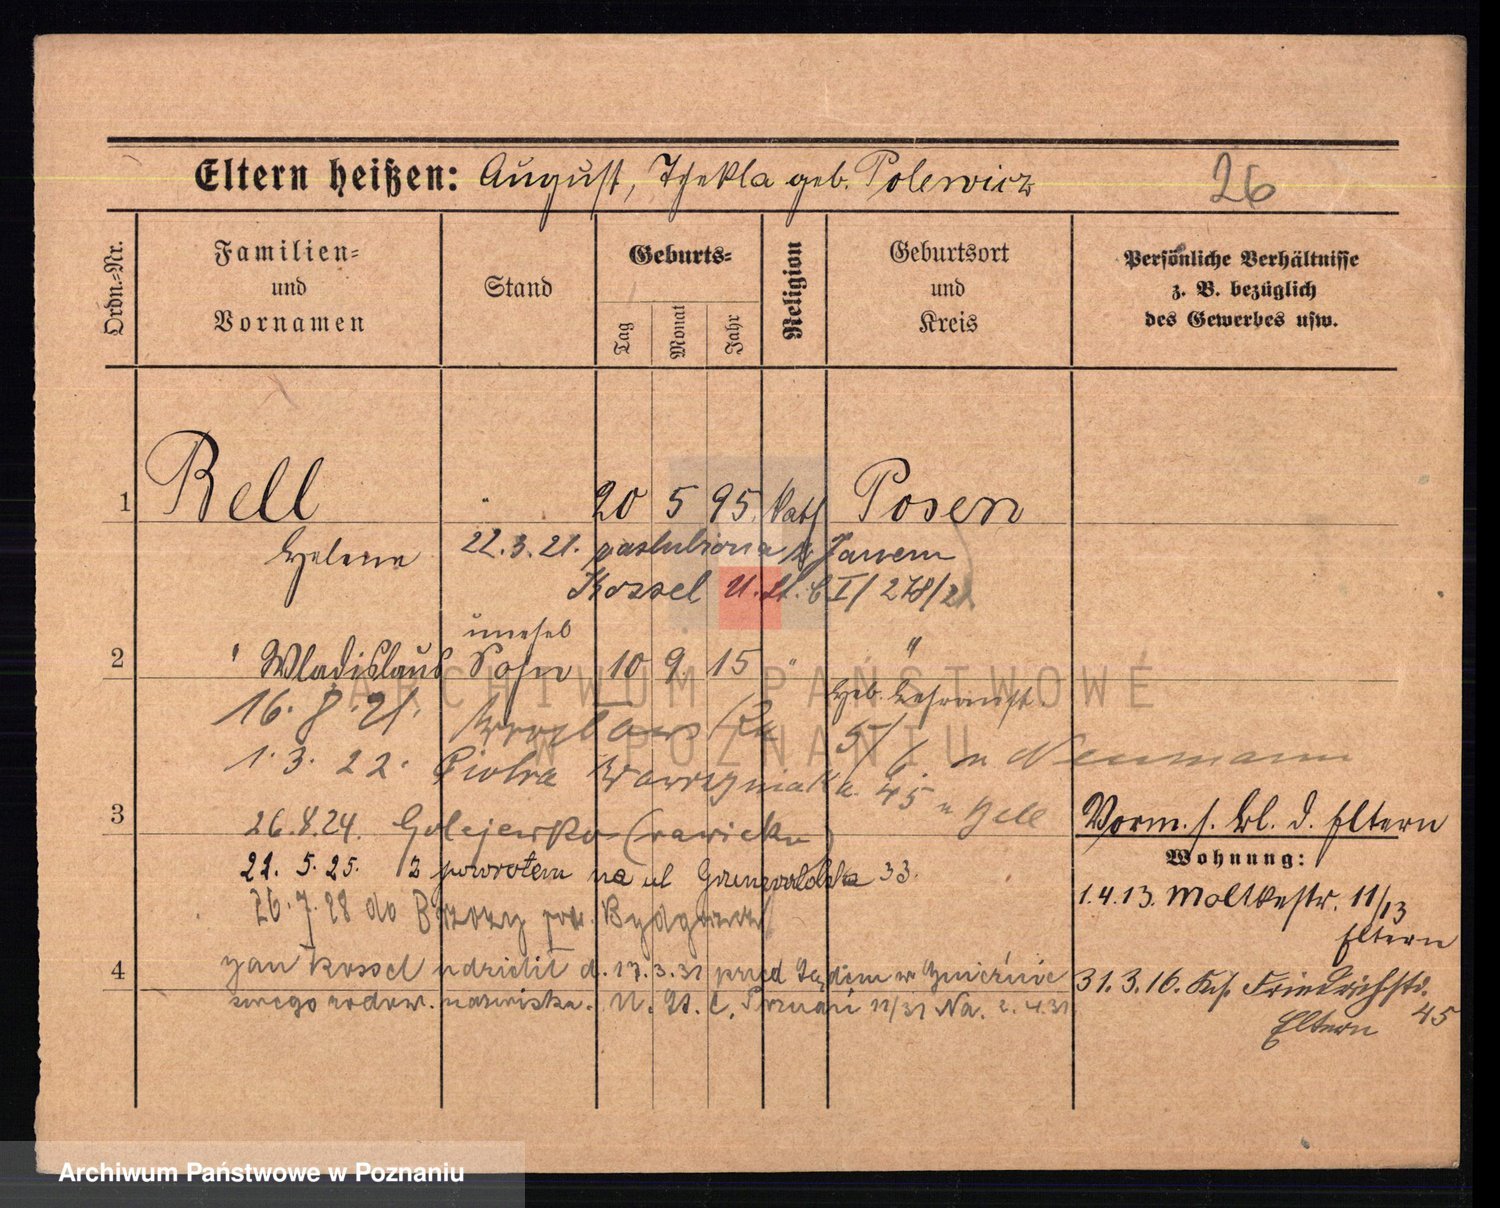 Eltern heißen: August, Thekla geb. Polewicz
26
Ordn.-Nr.
Familien-
und
Vornamen
Stand
Geburts-
Tag
Monat
Jahr
Religion
Geburtsort
und
Kreis
Persönliche Verhältnisse
z. B. bezüglich
des Gewerbes usw.
1 Bell " 20 5 95. kath Posen
Helene 22.3.21. zaslubiona z Janem
Kossel U. St. C I/278/21
unehel
2 " Wladislaus Sohn 10 9. 15 " "
Geb.
16. 8. 21. 5/6 Neumann
1. 3. 22. Piotra Wawrzyniaka 45 Bell
3 26.8.24. Golejewko (rawicki)
22. 5. 25. z powrotem na ul Grunwaldzka 33.
26. 7. 28 do Brzozy pow. Bydgoszcz
4 Jan Kossel udzielił d. 17.3.31 przed Sędzim w Gnieźnie
swego rodow. nazwiska. U. St. C. Poznań 11/31 Na. 2.4.31
Vorm. s. Bl. d. Eltern
Wohnung:
1.4.13. Moltkestr. 11/13
Eltern
31.3.16. Ks. Friedrichstr.
45
Eltern
ARCHIWUM PAŃSTWOWE
W POZNANIU
Archiwum Państwowe w Poznaniu